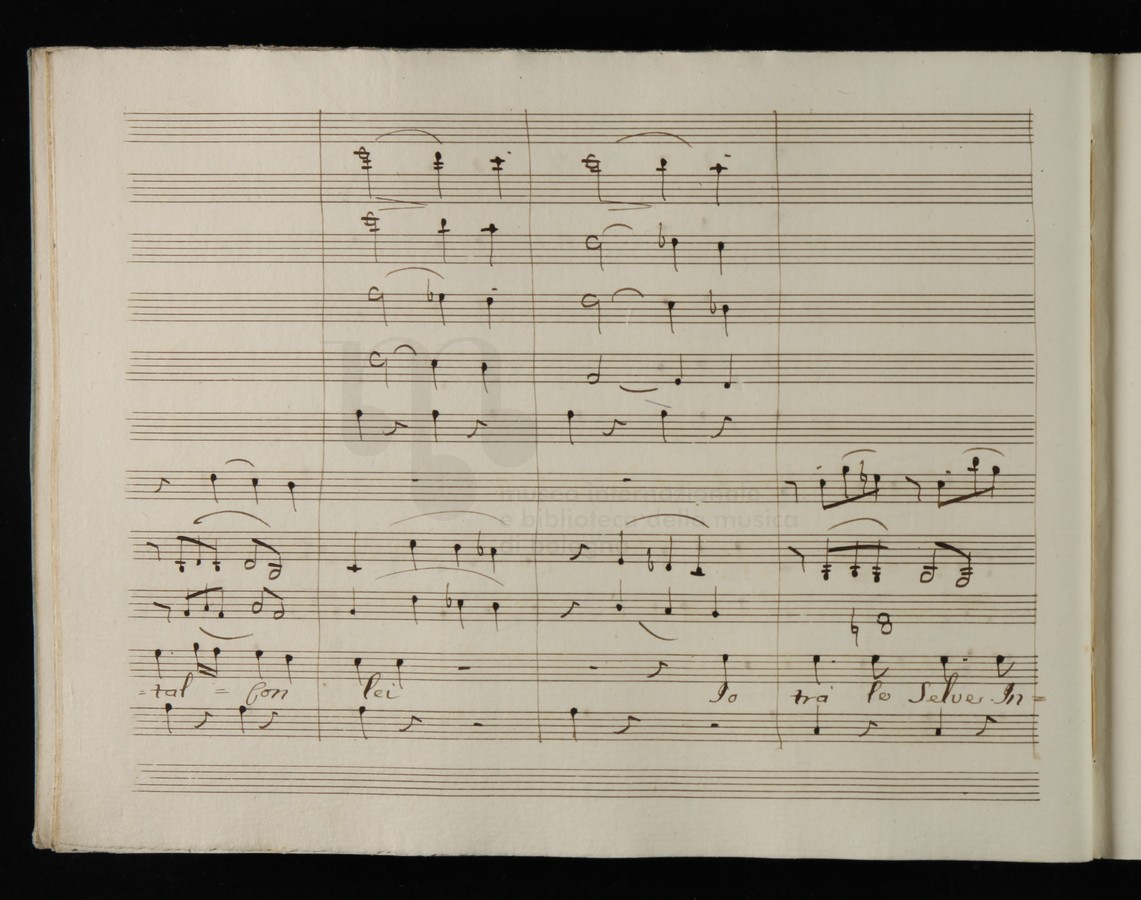 museo internazionale
e biblioteca della musica
di bologna
=tal = con lei Io tra le Selve In=